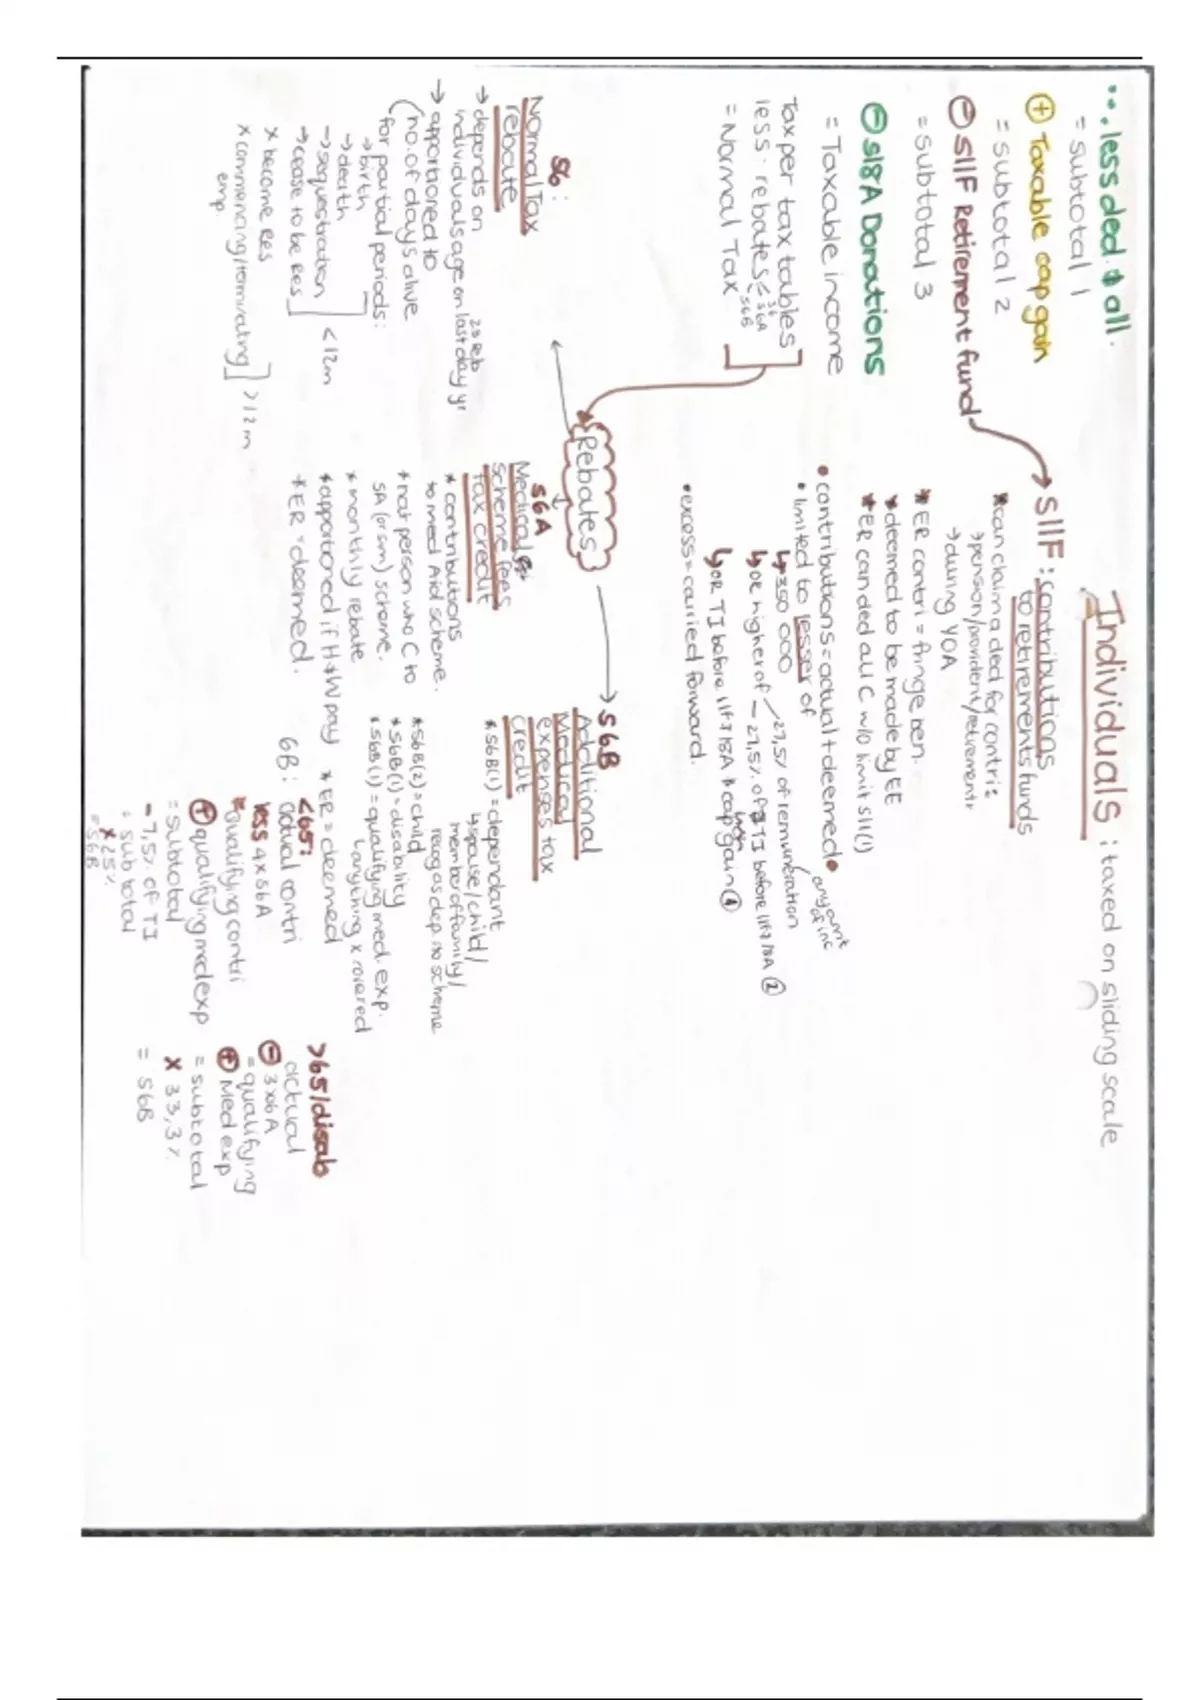 Individuals : taxed on sliding scale
... less ded. & all.
= subtotal 1
⊕ Taxable cap gain
= subtotal 2
⊖ S11F Retirement fund
= subtotal 3
⊖ s18A Donations
= Taxable income
Tax per tax tables
less. rebates ≤ S6
S6A
S6B
= Normal Tax
S11F : contributions
to retirements funds
* can claim a ded for contri:
→ pension/provident/retirement
→ during YOA
* ER contri = fringe ben.
* deemed to be made by EE
* ER can ded all C w/o limit s11(l)
• contributions = actual + deemed •
any amt
of inc
• limited to lesser of
↳ 350 000
↳ OR higher of – 27,5% of remuneration
27,5% of TI before 11F/18A ②
↳ OR TI before 11F/18A & cap gain ④
• excess = carried forward.
Rebates
S6 :
Normal Tax
rebate
→ depends on 28 Feb
individuals age on last day yr
→ apportioned to
(no. of days alive
for partial periods:
→ birth
→ death
→ sequestration
→ cease to be RES
< 12m
x become RES
x commencing/terminating
emp.
> 12m
S6A
Medical
scheme fees
tax credit
* contributions
to med Aid scheme.
* nat person who C to
SA (or sim) scheme.
* monthly rebate
* apportioned if H+W pay
* ER = deemed.
S6B
Additional
Medical
expenses tax
credit
* S6B(1) = dependant
↳ spouse/child/
member of family/
recog as dep ito scheme
* S6B(2) = child
* S6B(1) = disability
* S6B(1) = qualifying med. exp.
↳ anything x covered
* ER = deemed
6B:
<65:
actual contri
less 4 x S6A
qualifying contri
⊕ qualifying med exp
= subtotal
- 7,5% of TI
= subtotal
x 25%
= S6B
>65/disab
actual
⊖ 3x6A
= qualifying
⊕ Med exp
= subtotal
x 33,3%
= S6B